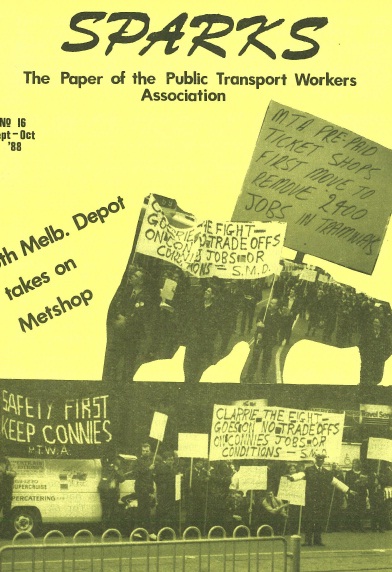 SPARKS
The Paper of the Public Transport Workers
Association
No 16
ept-Oct
'88
MTA PRE-PAID
TICKET SHOPS
FIRST MOVE TO
REMOVE 2400
JOBS IN TRAMWAYS
th Melb. Depot
takes on
Metshop
E FIGHT-
NO TRADE OFFS
JOBS OR
S.M.D.
SAFETY FIRST
KEEP CONNIES
P.T.W.A.
CLARRIE, THE FIGHT-
GOES ON NO TRADE OFFS
ON CONNIES JOBS OR
CONDITIONS - S.M.D.